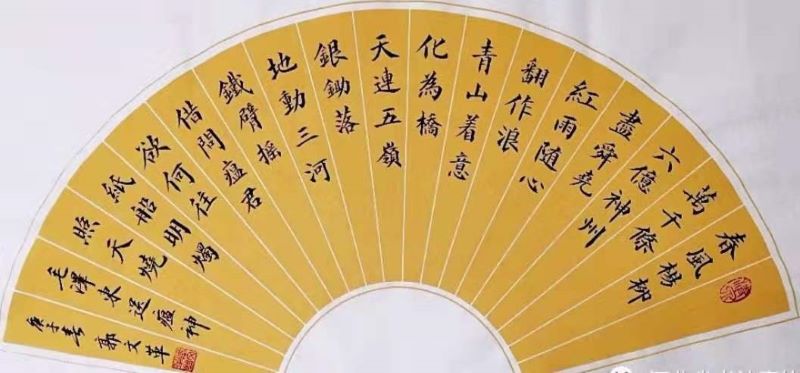 春風
萬千條楊柳
六億神州
盡舜堯
紅雨隨心
翻作浪
青山着意
化為橋
天連五嶺
銀鋤落
地動三河
鐵臂搖
借問瘟君
欲何往
紙船明燭
照天燒
毛澤東送瘟神
庚子春 郭文革